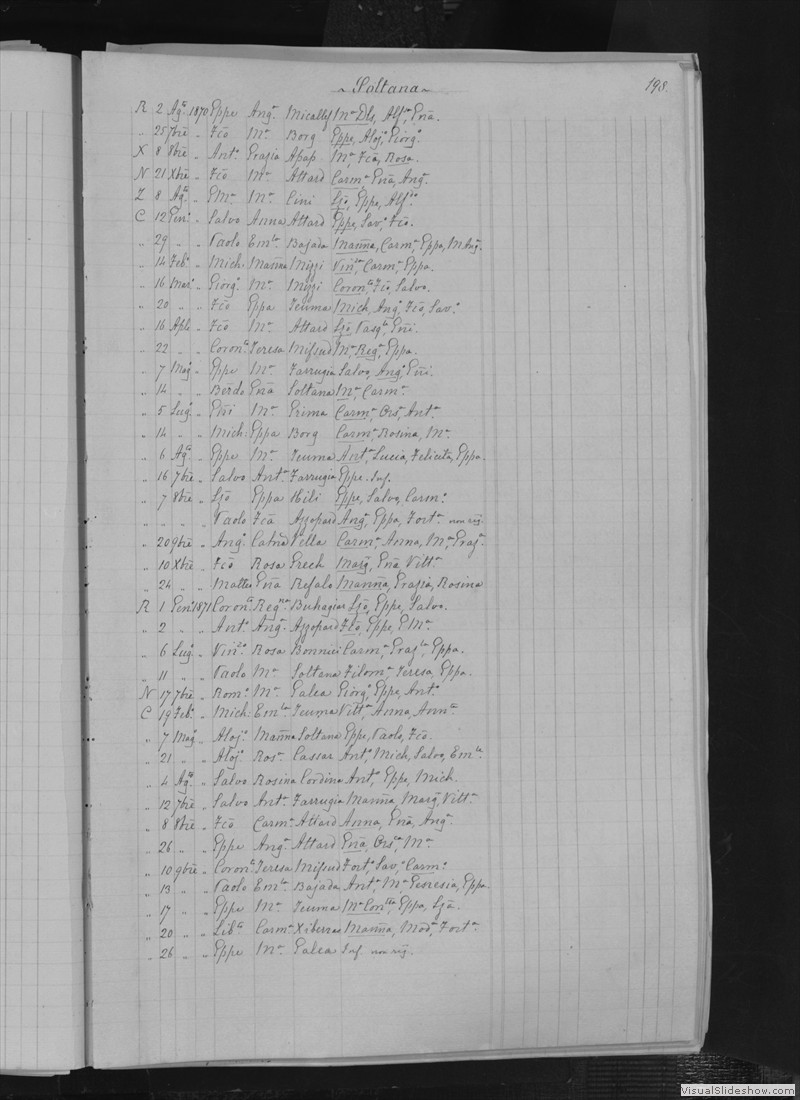 ~ Soltana ~ 198.
R 2 Agto 1870 Eppe Anga Micallef Ma Dls, Alfsa, Enã.
„ 25 7bre „ Fcõ Ma Borg Eppe, Alojo, Giorgo
X 8 8bre „ Anto Grazia Apap Ma, Fcã, Rosa.
N 21 Xbre „ Fcõ Ma Attard Carma Enã, Anga
Z 8 Agto „ EMa Ma Cini Ljõ, Eppe, Alfso
C 12 Geno „ Salvo Anna Attard Eppe, Savo Fcõ.
„ 29 „ „ Paolo Emla Bajada Mariña, Carma Eppa, M.Anga
„ 14 Febo „ Mich: Mariña Mizzi Vinca, Carma, Eppa.
„ 16 Maro „ Giorgo Ma Mizzi Coronto Fcõ, Salvo.
„ 20 „ „ Fcõ Eppa Teuma Mich, Ango, Fcõ, Savo
„ 16 Aple „ Fcõ Ma Attard Ljõ, Pasqle Eñi.
„ 22 „ „ Corono Teresa Mifsud Ma, Rega, Eppa.
„ 7 Mago „ Eppe Ma Farrugia Salvo, Ango, Eñi.
„ 14 „ „ Berdo Enã Soltana Ma, Carma
„ 5 Lugo „ Eñi Ma Grima Carma, Orsa, Anta
„ 14 „ „ Mich: Eppa Borg Carma, Rosina, Ma
„ 6 Agto „ Eppe Ma Teuma Anta, Lucia, Felicita, Eppa.
„ 16 7bre „ Salvo Anta Farrugia Eppe. Inf.
„ 7 8bre „ Ljõ Eppa Hili Eppe, Salvo, Carmo
„ „ „ „ Paolo Fcã Azzopard Ango, Eppa, Forta non rig.
„ 20 9bre „ Ango Catna Vella Carma, Anna, Ma, Graza
„ 10 Xbre „ Fcõ Rosa Grech Marga, Enã, Vitta
„ 24 „ „ Matteo Enã Refalo Mariña, Grazia, Rosina
R 1 Geno 1871 Corono Regna Buhagiar Ljõ, Eppe, Salvo.
„ 2 „ „ Anto Anga Azzopard Fcõ, Eppe, EMa
„ 6 Lugo „ Vinzo Rosa Bonnici Carma, Grazla, Eppa.
„ 11 „ „ Paolo Ma Soltana Filoma, Teresa, Eppa.
N 17 7bre „ Romo Ma Galea Giorgo, Eppe, Anto
C 19 Febo „ Mich: Emla Teuma Vitta, Anna, Annta
„ 7 Mago „ Alojo Mariña Soltana Eppe, Paolo, Fcõ.
„ 21 „ „ Alojo Rosa Cassar Anto, Mich, Salvo, Emla
„ 4 Agto „ Salvo Rosina Cordina Anto, Eppe, Mich.
„ 12 7bre „ Salvo Anta Farrugia Mariña, Marga, Vitta
„ 8 8bre „ Fcõ Carma Attard Anna, Enã, Anga
„ 26 „ „ Eppe Anga Attard Enã, Orsla, Ma
„ 10 9bre „ Corono Teresa Mifsud Forto, Savo, Carmo
„ 13 „ „ Paolo Emla Bajada Anta, Ma Genesia, Eppa.
„ 17 „ „ Eppe Ma Teuma Ma Contta, Eppa, Ljã.
„ 20 „ „ Libto Carma Xiberras Mariña, Moda, Forta
„ 26 „ „ Eppe Ma Galea Inf. non rig.
VisualSlideshow.com